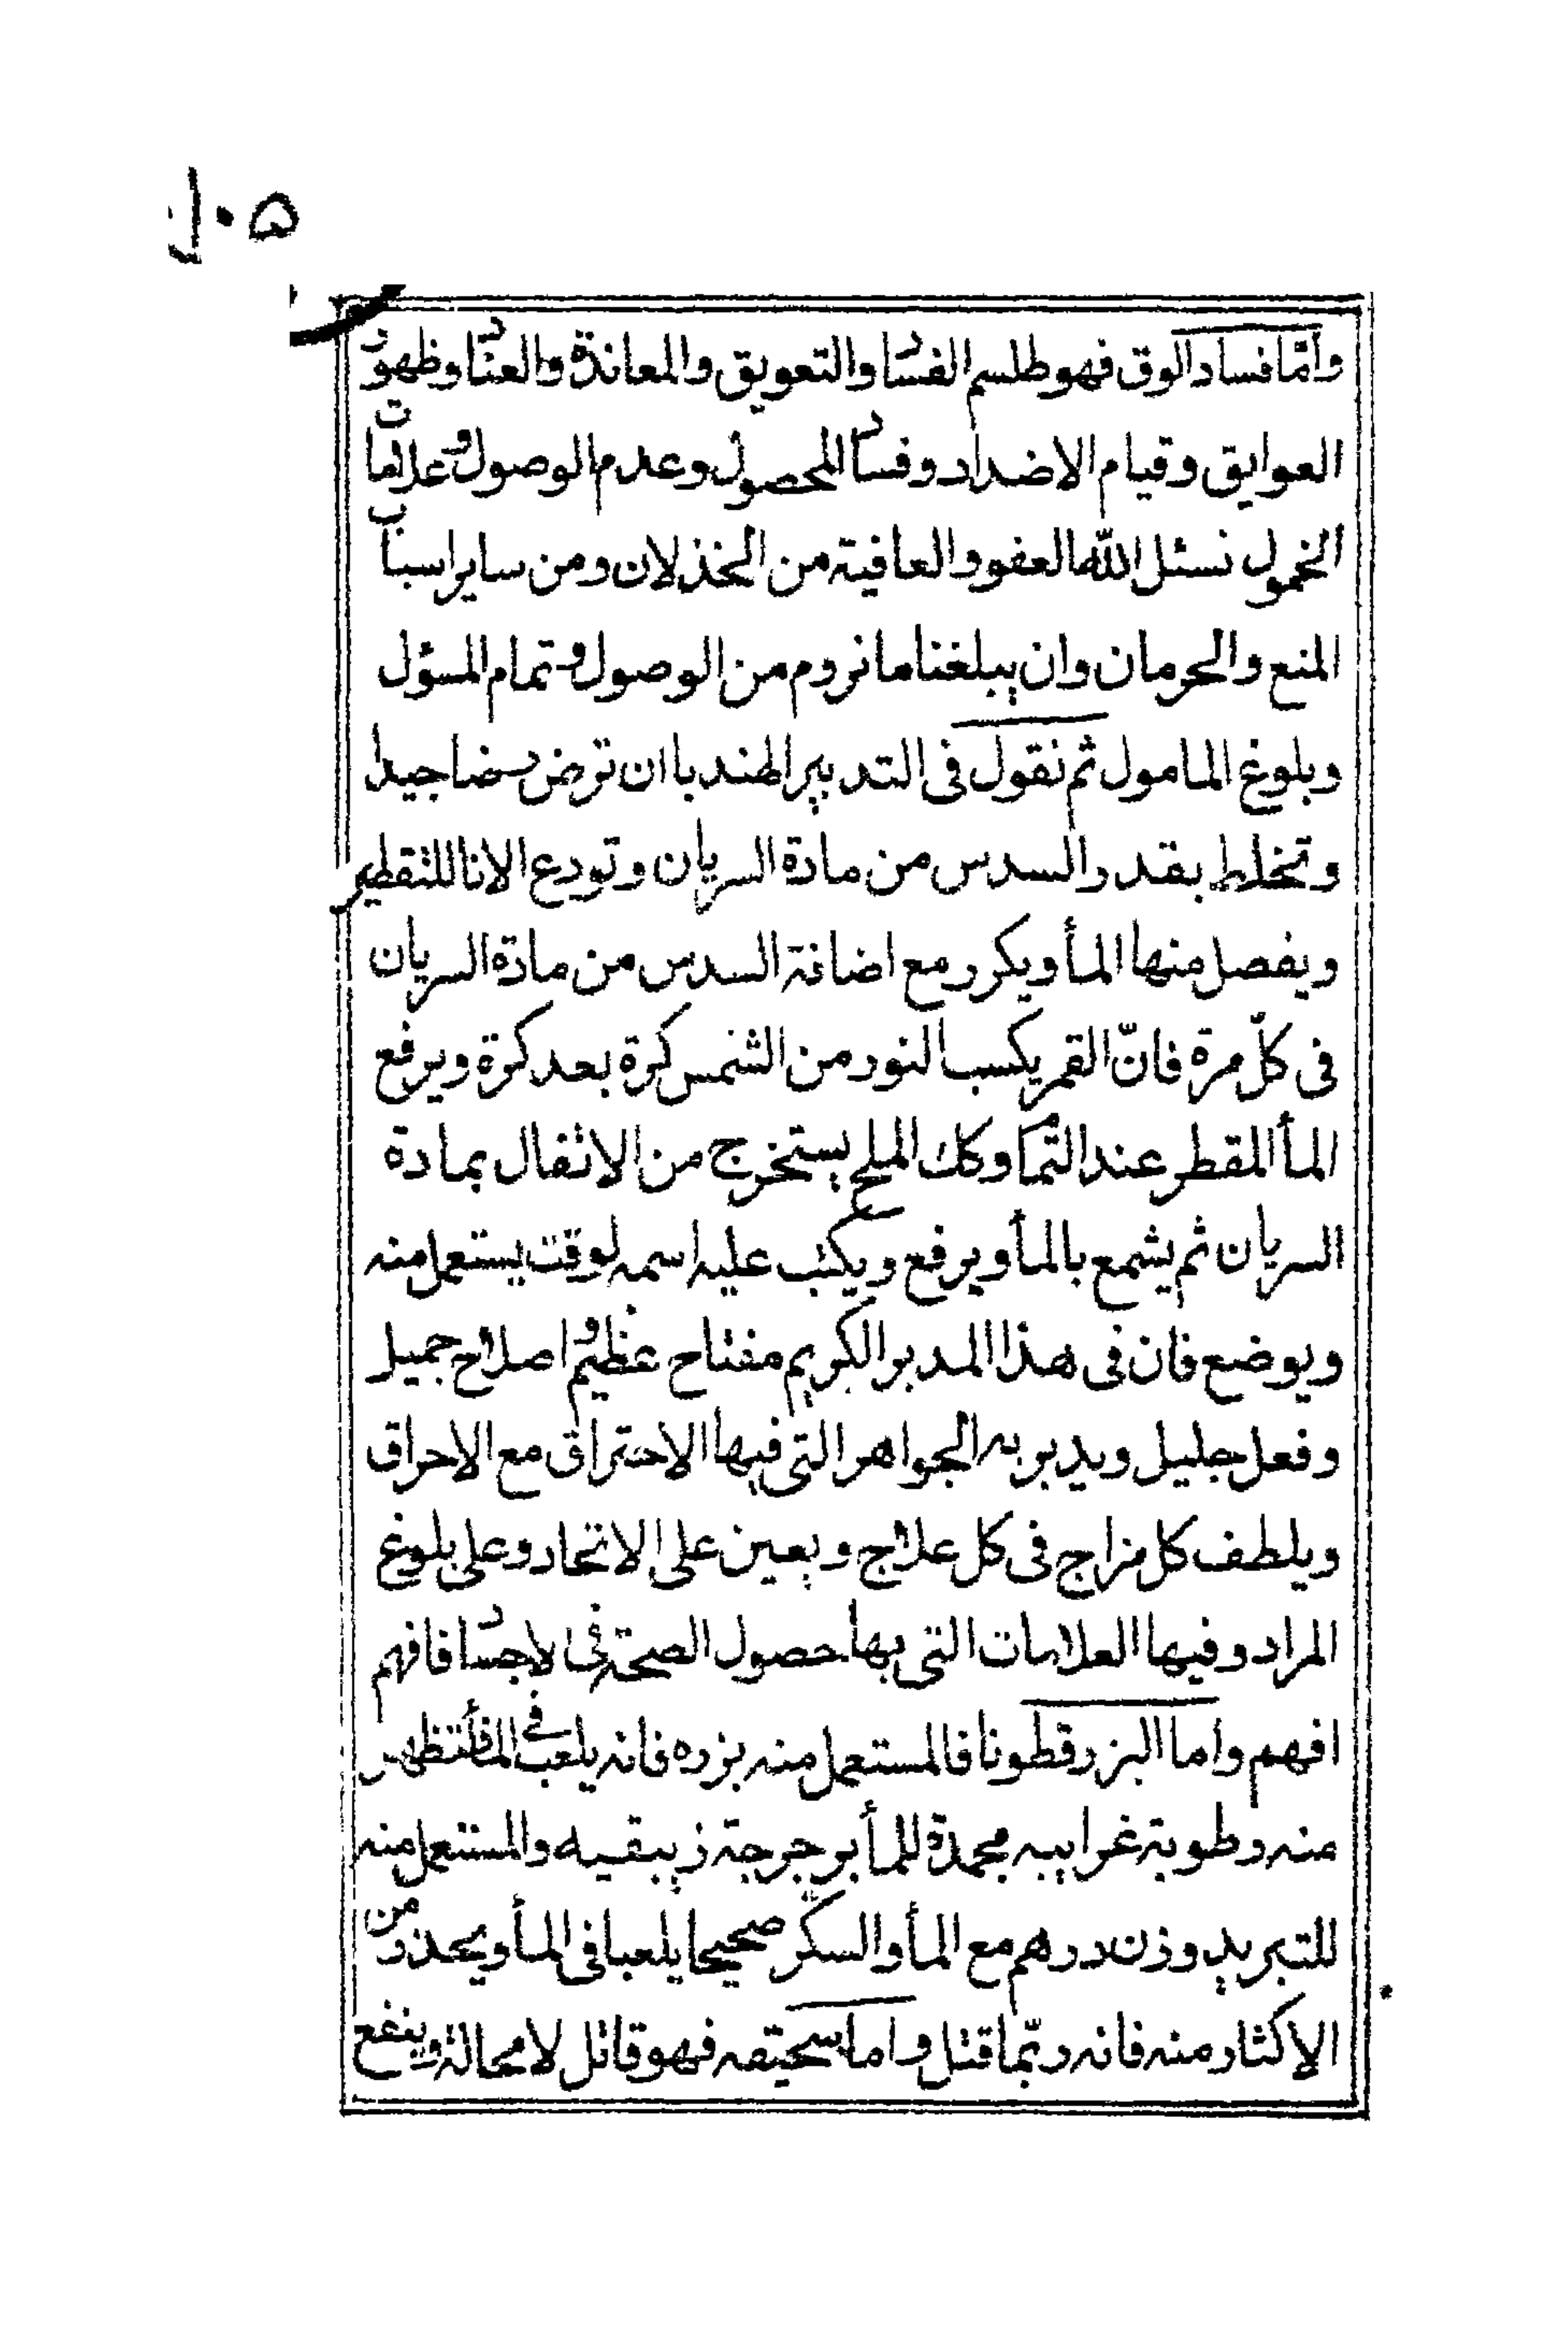 ١٠٥
وامّا فساد الوفق فهو طلسم الفساد والتعويق والمعاندة والعناد وظهور
العوايق وقيام الاضداد وفساد المحصول وعدم الوصول وعلامات
الخمول نسئل الله العفو والعافية من الخذلان ومن ساير اسباب
المنع والحرمان وان يبلغنا ما نروم من الوصول وتمام المسؤل
وبلوغ المامول ثم نقول فى التدبير الهندبا ان ترض رضا جيدا
وتخلط بقدر السدس من مادة السريان وتودع الانا للتقطير
ويفصل منها المأ ويكرر مع اضافة السدس من مادة السريان
فى كلّ مرة فانّ القمر يكسب النور من الشمس كرة بعد كرة ويرفع
المأ المقطر عند التمام وكك الملح يستخرج من الاثفال بمادة
السريان ثم يشمع بالمأ ويرفع ويكتب عليه اسمه لوقت يستعمل منه
ويوضع فان فى هذا المدبر الكريم مفتاح عظيم واصلاح جميل
وفعل جليل ويدبر به الجواهر التى فيها الاحتراق مع الاحراق
ويلطف كل مزاج فى كل علاج ويعين على الاتحاد وعلى بلوغ
المراد وفيها العلامات التى بها حصول الصحة فى الاجساد فافهم
افهم واما البزرقطونا فالمستعمل منه بزره فانه يلعب فى المأ فتظهر
منه رطوبة غرابيه مجمدة للمأ برجرجة زيبقيه والمستعمل منه
للتبريد وزن درهم مع المأ والسكّر صحيحا يلعبا فى المأ ويحذر من
الاكثار منه فانه ربّما قتل واما سحيقه فهو قاتل لا محالة وينفع